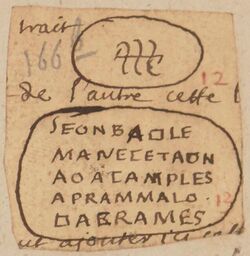 trait
166
12
de l'autre cette
SEONBAOLE
MANECETAON
AOATAMPLES
APRAMMALO.
OABRAMES
12
ut ajouter ici